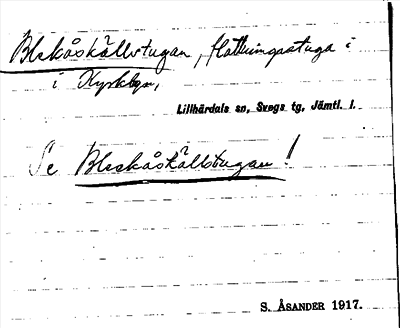 Blekåskällstugan, slåttningsstuga i
i Kyrkbyn,
Lillhärdals sn, Svegs tg, Jämtl. l.
Se Bleckåskällstugan!
S. ÅSANDER 1917.